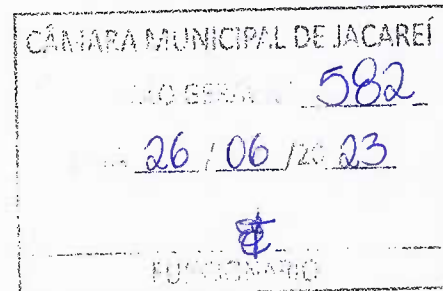 CÂMARA MUNICIPAL DE JACAREÍ
582
26 / 06 /20 23
FUNCIONÁRIO